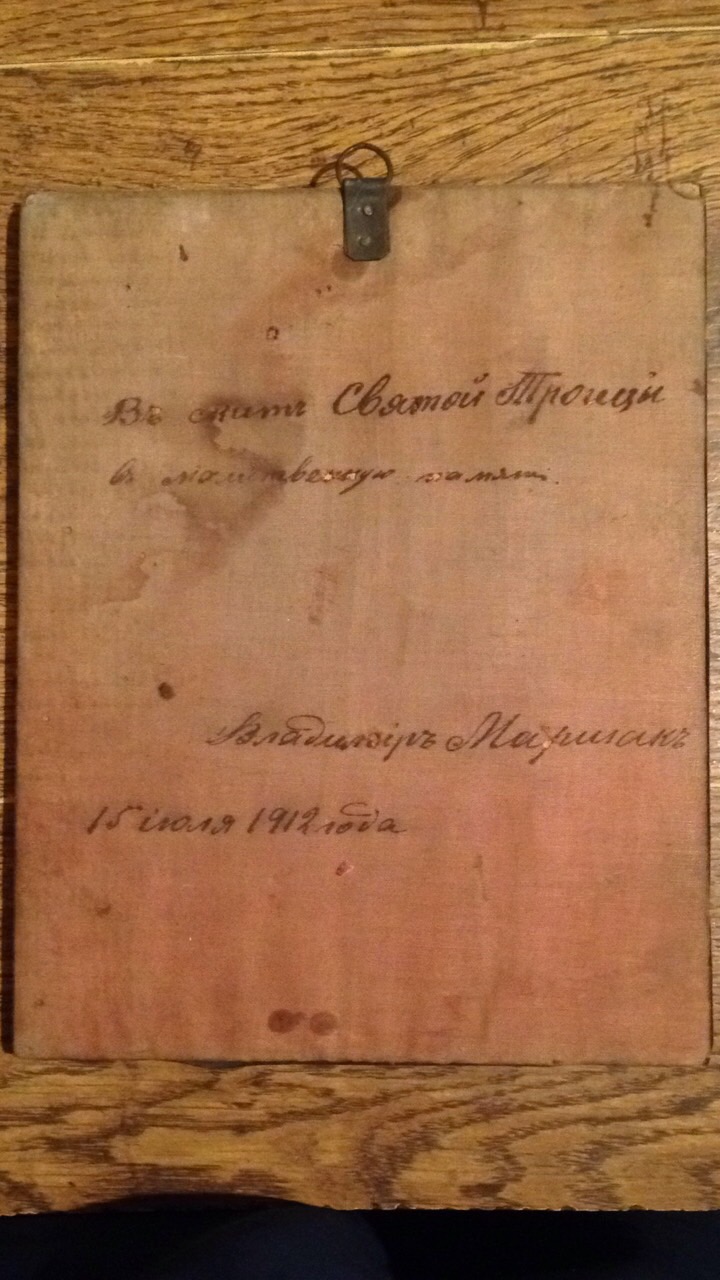 Въ скитъ Святой Троицы
въ молитвенную память.
Владимиръ
15 іюля 1912 года